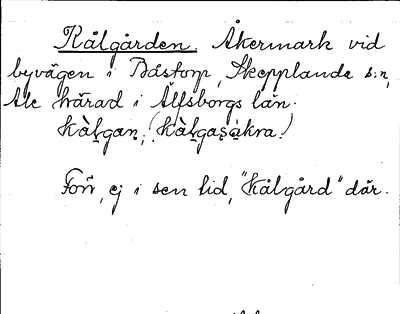 Kålgården. Åkermark vid
byvägen i Båstorp, Skepplanda s:n,
Ale härad i Älfsborgs län.
Kàlgan, (Kàlgasákra)
Förr, ej i sen tid, "Kålgård" där.